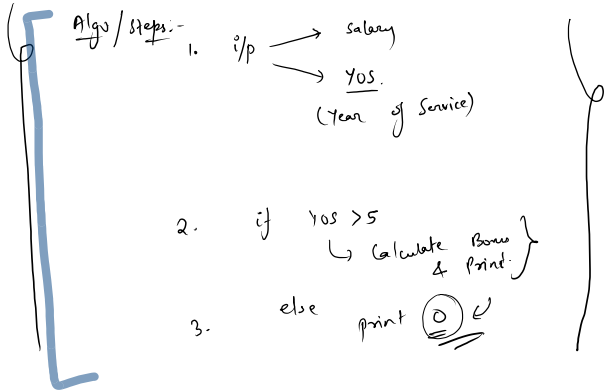 Algo/Steps:-
1. i/p → Salary
→ YOS.
(Year of Service)
2. if YOS >5
↳ Calculate Bonus
& Print.
3. else print 0